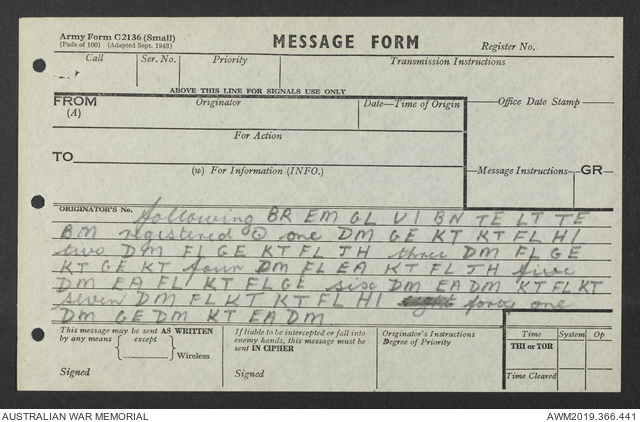 Army Form C2136 (Small)
(Pads of 100) (Adapted Sept. 1943)
MESSAGE FORM
Register No.
Call
Ser. No.
Priority
Transmission Instructions
ABOVE THIS LINE FOR SIGNALS USE ONLY
FROM
(A)
Originator
Date—Time of Origin
Office Date Stamp
For Action
TO
(w) For Information (INFO.)
Message Instructions
GR
ORIGINATOR'S No.
following BR EM GL VI BN TE LT TE
BM registered ⊙ one DM GE KT KT FL HI
two DM FL GE KT FL JH three DM FL GE
KT GE KT four DM FL EA KT FL JH five
DM EA FL KT FL GE six DM EA DM KT FL KT
seven DM FL KT KT FL HI forty one
DM GE DM KT EA DM
This message may be sent AS WRITTEN
by any means
except
Wireless
Signed
If liable to be intercepted or fall into
enemy hands, this message must be
sent IN CIPHER
Signed
Originator's Instructions
Degree of Priority
Time
System
Op
THI or TOR
Time Cleared
AUSTRALIAN WAR MEMORIAL
AWM2019.366.441